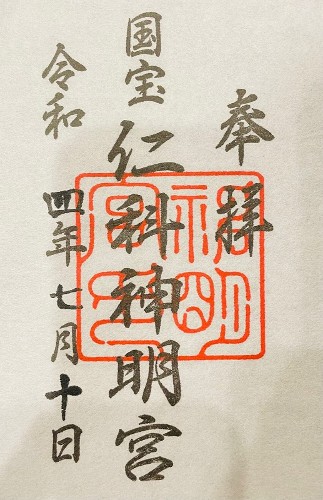 奉拝
国宝 仁科神明宮
令和四年七月十日